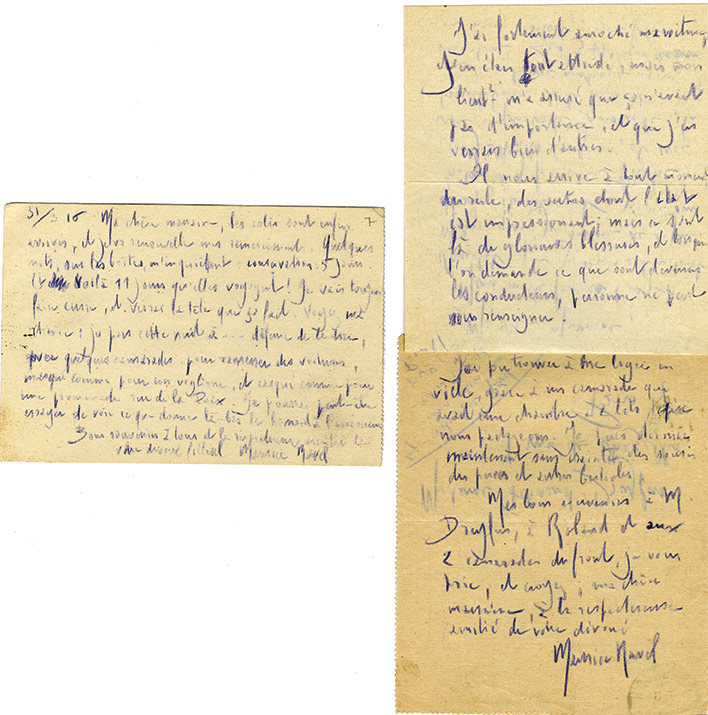 31/3 16 7
Ma chère marraine, les colis sont enfin
arrivés, et je vous renouvelle mes remerciements. Quelques
mots, sur les boîtes, m'inquiètent: conservation: 5 jours.
Et voilà 11 jours qu'elles voyagent! Je vais toujours
faire cuire, et verrai la tête que ça fait. Voyez, ma
chère: je pars cette nuit à ---
avec quelques camarades pour ramener des voitures,
casqué comme pour
une promenade rue de la Paix. Je pourrai peut-être
essayer de voir ce que donne là-bas le
Bons souvenirs à tous de la respectueuse amitié de
votre dévoué filleul Maurice Ravel
J'ai fortement amoché ma voiture,
J'en étais tout attristé, mais mon
lieut! m'a assuré que ça n'avait
pas d'importance, et que j'en
verrais bien d'autres.
Il nous arrive à tout moment
des autres dont l'état
est impressionnant; mais ce sont
là de glorieuses blessures, et lorsque
l'on demande ce que sont devenus
les conducteurs, personne ne peut
vous renseigner.
J'ai pu trouver à me loger en
ville, grâce à un camarade qui
avait une chambre à 2 lits que
nous partageons. Je puis dormir
maintenant sans crainte des souris
des puces et autres bestioles.
Mes bons souvenirs à M.
Dreyfus, à Roland et aux
2 camarades du front, je vous
prie, et croyez, ma chère
marraine, à la respectueuse
amitié de votre dévoué
Maurice Ravel